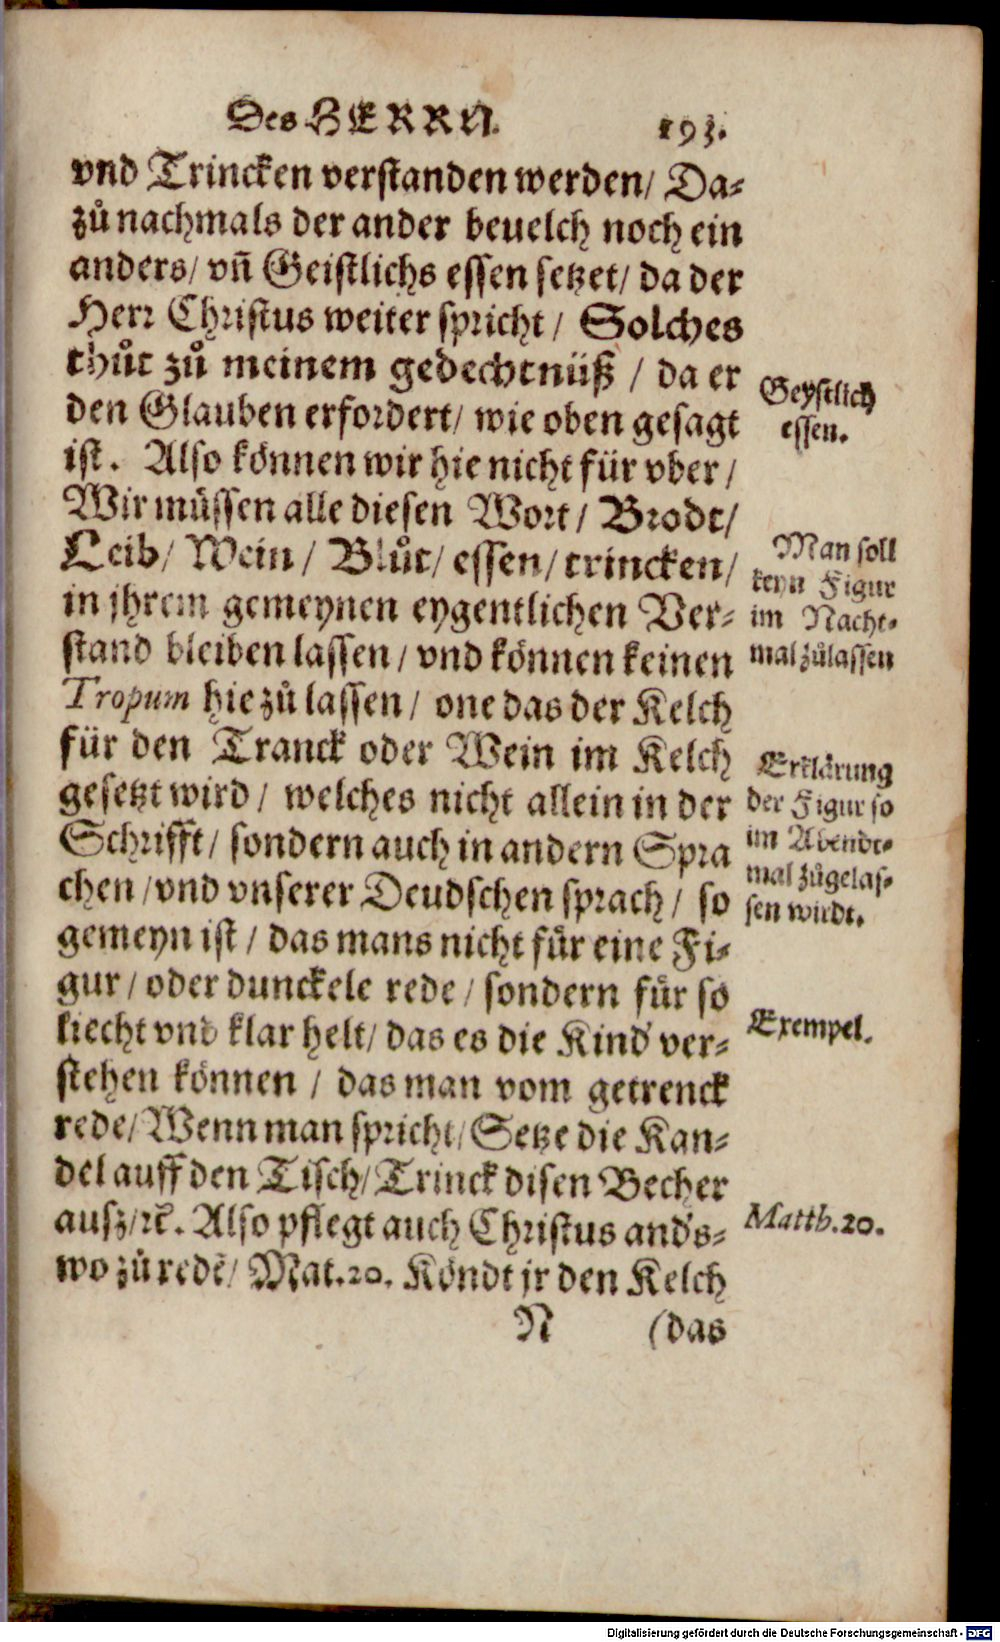 Des HERRN. 193.
vnd Trincken verstanden werden/ Da-
zů nachmals der ander beuelch noch ein
anders/ vñ Geistlichs essen setzet/ da der
Herr Christus weiter spricht/ Solches
thůt zů meinem gedechtnüß / da er
den Glauben erfordert/ wie oben gesagt
ist. Also können wir hie nicht für vber /
Wir müssen alle diesen Wort/ Brodt/
Leib/ Wein / Blůt/ essen/ trincken/
in jhrem gemeynen eygentlichen Ver-
stand bleiben lassen / vnd können keinen
Tropum hie zů lassen / one das der Kelch
für den Tranck oder Wein im Kelch
gesetzt wird / welches nicht allein in der
Schrifft/ sondern auch in andern Spra
chen /vnd vnserer Deudschen sprach / so
gemeyn ist / das mans nicht für eine Fi-
gur / oder dunckele rede / sondern für so
liecht vnd klar helt/ das es die Kind ver-
stehen können / das man vom getrenck
rede/ Wenn man spricht/ Setze die Kan-
del auff den Tisch/ Trinck disen Becher
ausz/ꝛc. Also pflegt auch Christus anďs-
wo zů redẽ/ Mat.20. Köndt jr den Kelch
N (das
Geystlich
essen.
Man soll
keyn Figur
im Nacht-
mal zůlassen
Erklärung
der Figur so
im Abendt-
mal zůgelas-
sen wirdt.
Exempel.
Matth.20.
Digitalisierung gefördert durch die Deutsche Forschungsgemeinschaft - DFG